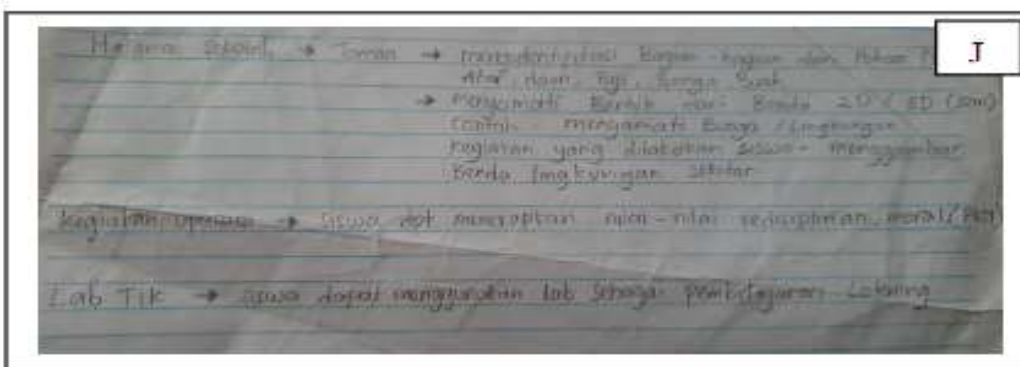 J
Halaman Sekolah → Taman → mengidentifikasi Bagian-bagian dari Pohon
Akar, daun, Biji, Bunga Buah
→ Mengamati Bentuk dari Benda 2D / 3D (seni)
Contoh - mengamati Bunga / Lingkungan
Kegiatan yang dilakukan siswa - menggambar
Benda lingkungan sekitar
Kegiatan upacara → siswa dpt menerapkan nilai-nilai kedisiplinan, moral
Lab TIK → siswa dapat menggunakan lab sebagai pembelajaran